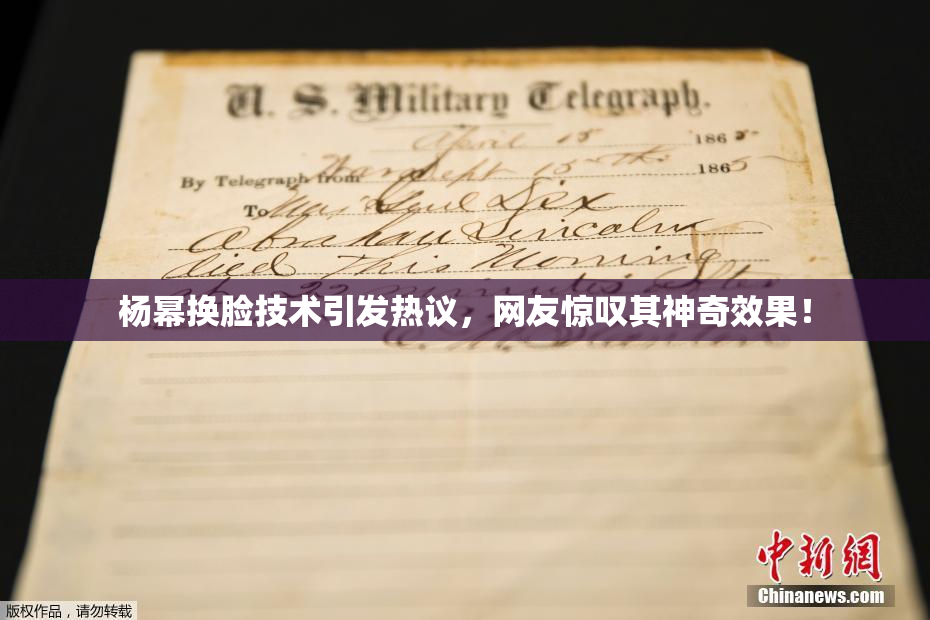 U. S. Military Telegraph.
April 15 1865-
By Telegraph from War Dept 15th 1865
To Maj Genl Dix
Abraham Lincoln
died This Morning
at 22 minutes after
杨幂换脸技术引发热议，网友惊叹其神奇效果！
中新網
Chinanews.com
版权作品，请勿转载